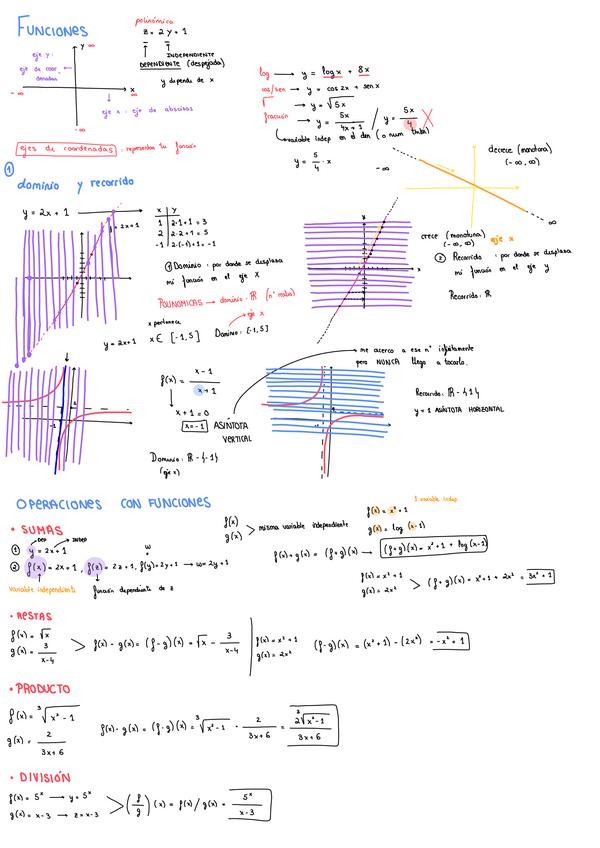 FUNCIONES
polinómica
z = 2y + 1
INDEPENDIENTE
DEPENDIENTE (despejada)
y depende de x
y ∞
eje y:
eje de coor-
denadas
- ∞
x
∞
eje x: eje de abscisas
- ∞
ejes de coordenadas: representas tu función
log → y = log x + 8x
cos/sen → y = cos 2x + sen x
√ → y = √5x
fracción → y = 5x / 4x+1 / y = 5x / 4 X
variable indep en el den (o num también)
y = 5/4 · x
decrece (monótona)
(-∞, ∞)
-∞
∞
1
dominio y recorrido
y = 2x + 1
y = 2x+1
x y
1 2·1+1 = 3
2 2·2+1 = 5
-1 2·(-1)+1 = -1
① Dominio: por donde se desplaza
mi función en el eje X
POLINÓMICAS → dominio: ℝ (nº reales)
eje x
x pertenece
y = 2x+1 x ∈ [-1, 5] Dominio: [-1, 5]
crece (monótona)
(-∞, ∞) eje x
② Recorrido: por donde se desplaza
mi función en el eje y
Recorrido: ℝ
f(x) = x-1 / x+1
x+1 = 0
x=-1 ASÍNTOTA
VERTICAL
Dominio: ℝ - {-1}
(eje x)
me acerco a ese nº infinitamente
pero NUNCA llego a tocarlo.
Recorrido: ℝ - {1}
y = 1 ASÍNTOTA HORIZONTAL
OPERACIONES CON FUNCIONES
• SUMAS
DEP INDEP
① y = 2x+1
② f(x) = 2x+1, f(z) = 2z+1, f(y) = 2y+1 → w = 2y+1
w
variable independiente
función dependiente de z
f(x)
g(x) > misma variable independiente
1 variable indep.
f(x) = x² + 1
g(x) = log (x-1)
f(x) + g(x) = (f+g)(x) → (f+g)(x) = x²+1 + log(x-1)
f(x) = x²+1
g(x) = 2x² > (f+g)(x) = x²+1 + 2x² = 3x²+1
• RESTAS
f(x) = √x
g(x) = 3 / x-4 > f(x) - g(x) = (f-g)(x) = √x - 3 / x-4
f(x) = x²+1
g(x) = 2x² (f-g)(x) = (x²+1) - (2x²) = -x²+1
• PRODUCTO
f(x) = ³√x²-1
g(x) = 2 / 3x+6
f(x)·g(x) = (f·g)(x) = ³√x²-1 · 2 / 3x+6 = 2³√x²-1 / 3x+6
• DIVISIÓN
f(x) = 5ˣ → y = 5ˣ
g(x) = x-3 → z = x-3 > (f/g)(x) = f(x) / g(x) = 5ˣ / x-3